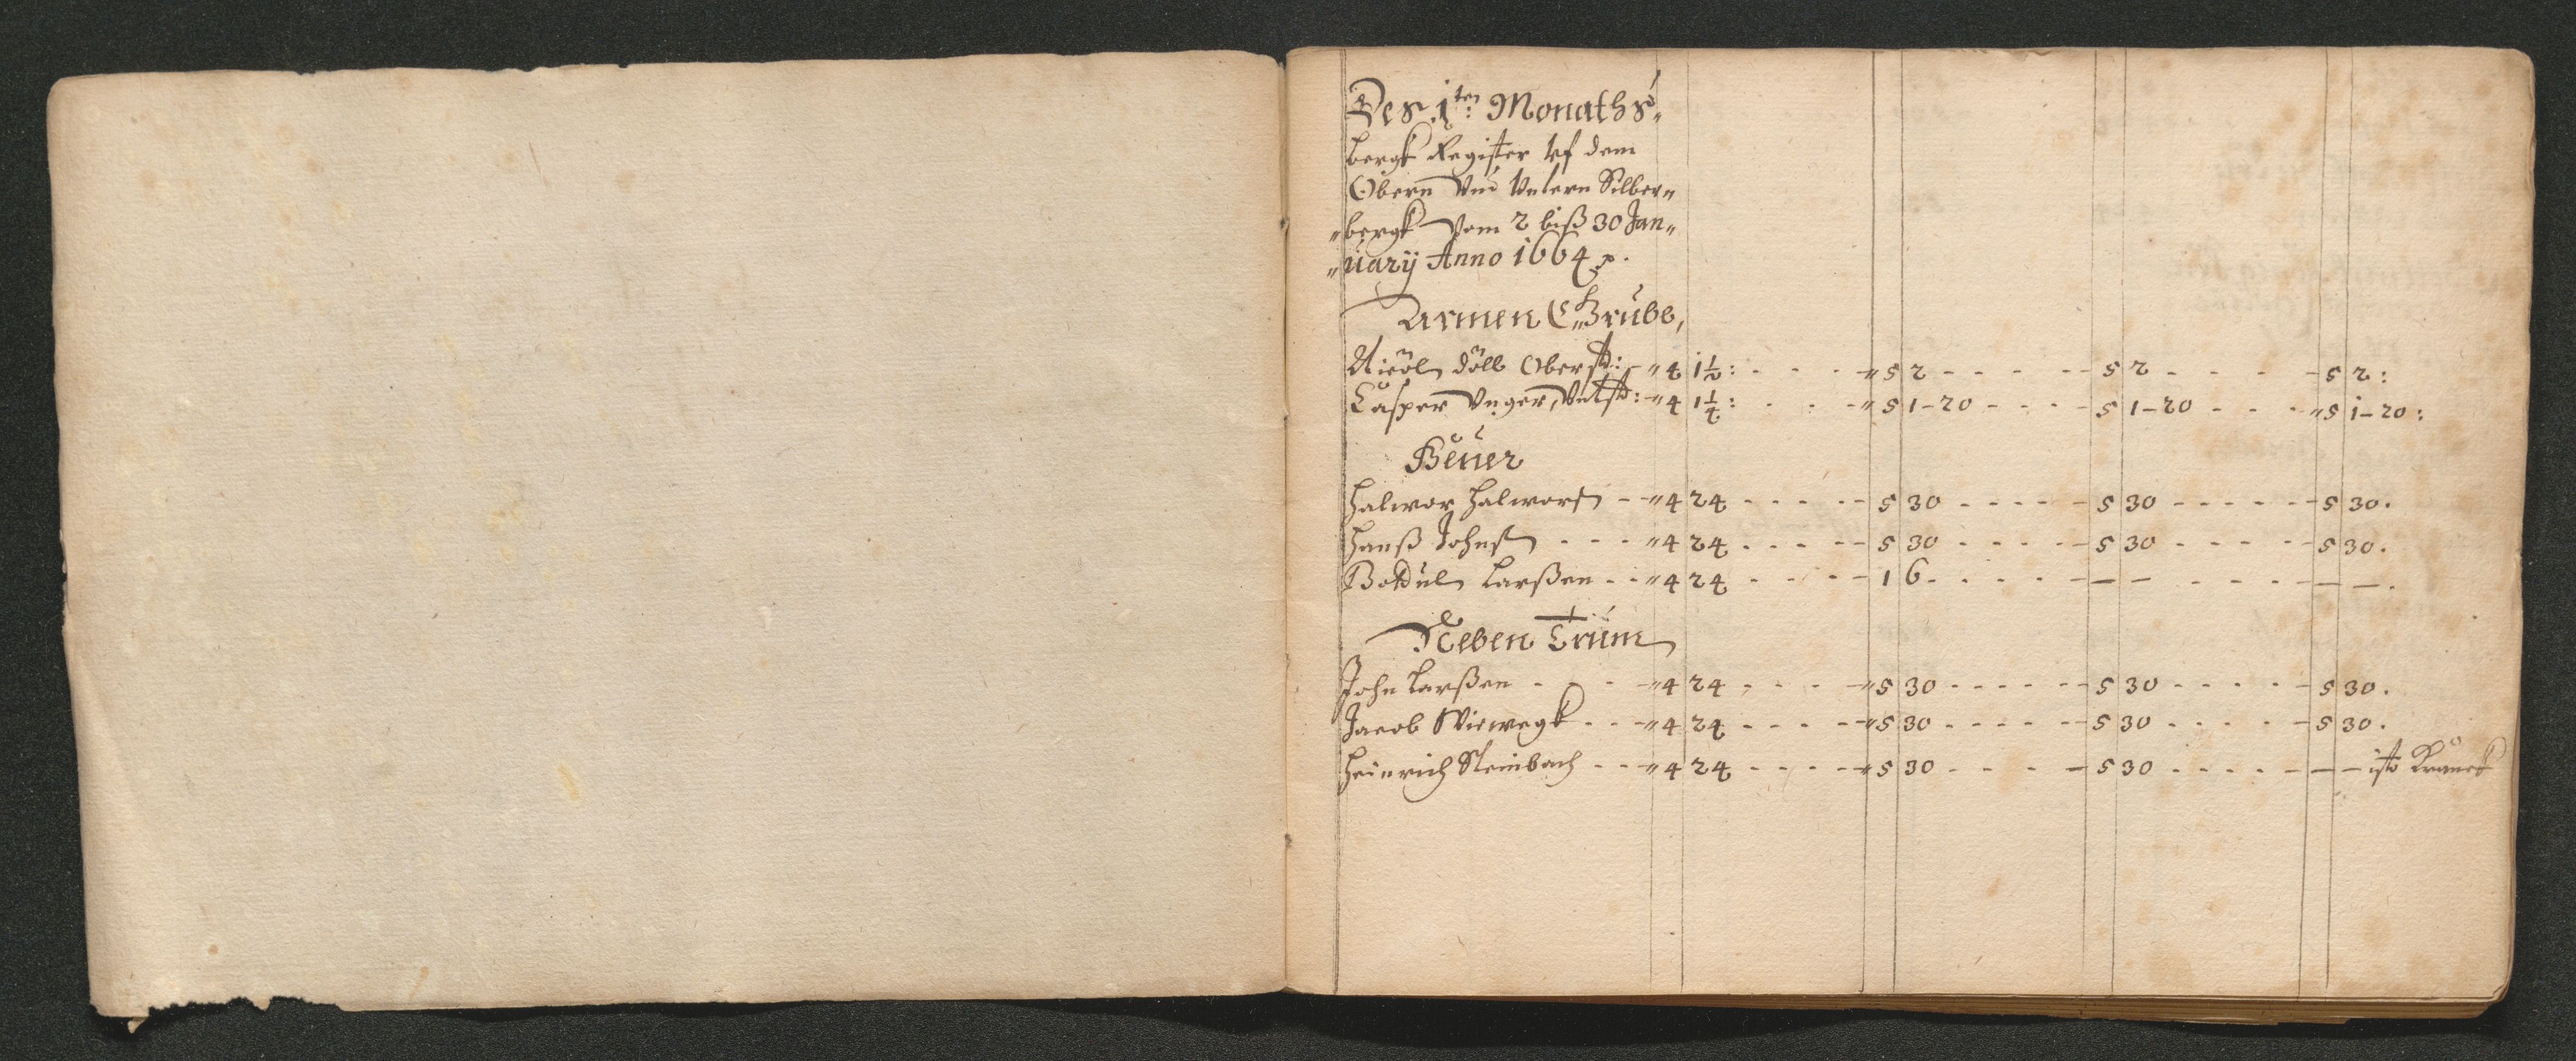 Des 1ten: Monaths„
bergk Register uf dem
Obern Vnd Vntern Silber„
„bergk Vom 2 biß 30 Jan„
„uarÿ Anno 1664
Armen Grube,
Nicol Döll Oberst: - „4 1½: - - - „5 2 - - - - 5 2 - - - - 5 2:
Casper Vnger, Vntst: - „4 1¼: - - - „5 1-20 - - - 5 1-20 - - - „5 1-20:
Heüer
Halwor Halworß - - „4 24 - - - - - 5 30 - - - - - 5 30 - - - - - 5 30.
Hanß Johnß - - - „4 24 - - - - - 5 30 - - - - - 5 30 - - - - - 5 30.
Larßen - - „4 24 - - - - 1 6 - - - - - — — - - - - — —.
Neben Trüm
John Larßen - - - „4 24 - - - - „5 30 - - - - - 5 30 - - - - - 5 30.
Jacob Viewegk - - - „4 24 - - - - „5 30 - - - - - 5 30 - - - - - 5 30.
Heinrich Steinbach - - „4 24 - - - - „5 30 - - - - 5 30 - - - - — — ist Kranck